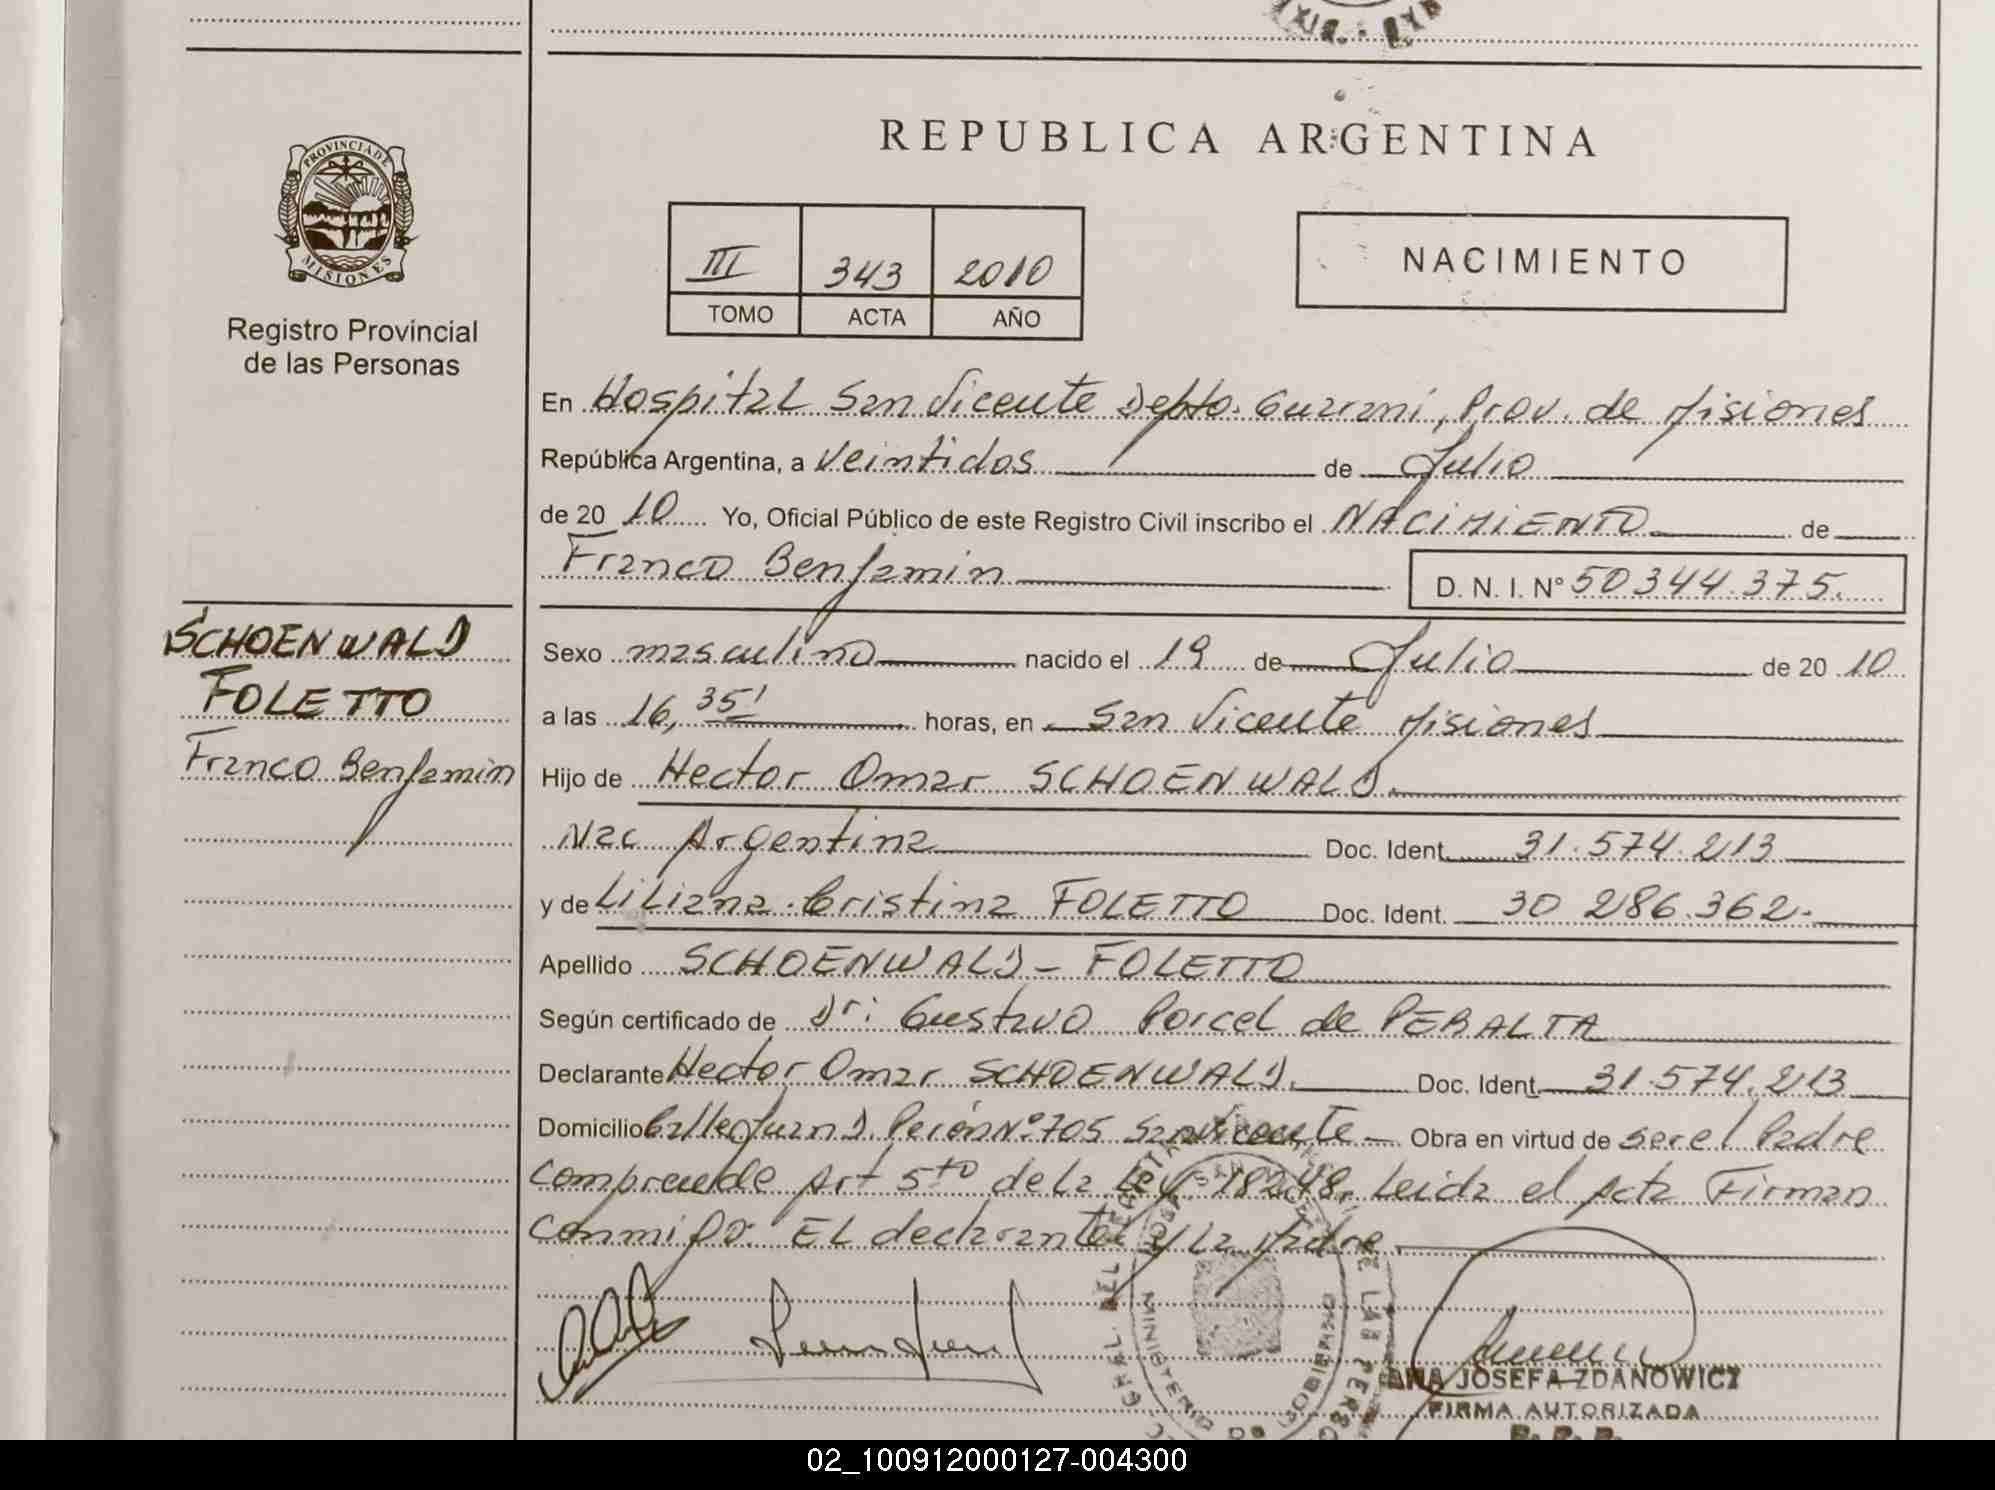 REPUBLICA ARGENTINA
PROVINCIA DE
MISIONES
Registro Provincial
de las Personas
III 343 2010
TOMO ACTA AÑO
NACIMIENTO
En Hospital San Vicente Depto. Guarani, Prov. de Misiones
República Argentina, a Veintidos de Julio
de 20 10 Yo, Oficial Público de este Registro Civil inscribo el NACIMIENTO de
Franco Benjamin D. N. I. Nº 50344.375.
SCHOENWALD
FOLETTO
Franco Benjamin
Sexo masculino nacido el 19 de Julio de 20 10
a las 16,35' horas, en San Vicente Misiones
Hijo de Hector Omar SCHOENWALD.
Nac Argentina Doc. Ident. 31.574.213
y de Liliana Cristina FOLETTO Doc. Ident. 30 286.362.
Apellido SCHOENWALD - FOLETTO
Según certificado de Dr: Gustavo Porcel de PERALTA
Declarante Hector Omar SCHOENWALD. Doc. Ident. 31.574.213
Domicilio Calle Juan D. Perón Nº 705 San Vicente Obra en virtud de ser el Padre
Comprende Art 5to de la Ley 18248. Leida el Acta Firman
Conmigo: EL declarante y La Madre.
MINISTERIO GOBIERNO
DE LAS PERSO
ANA JOSEFA ZDANOWICZ
FIRMA AUTORIZADA
R. P. P.
02_100912000127-004300